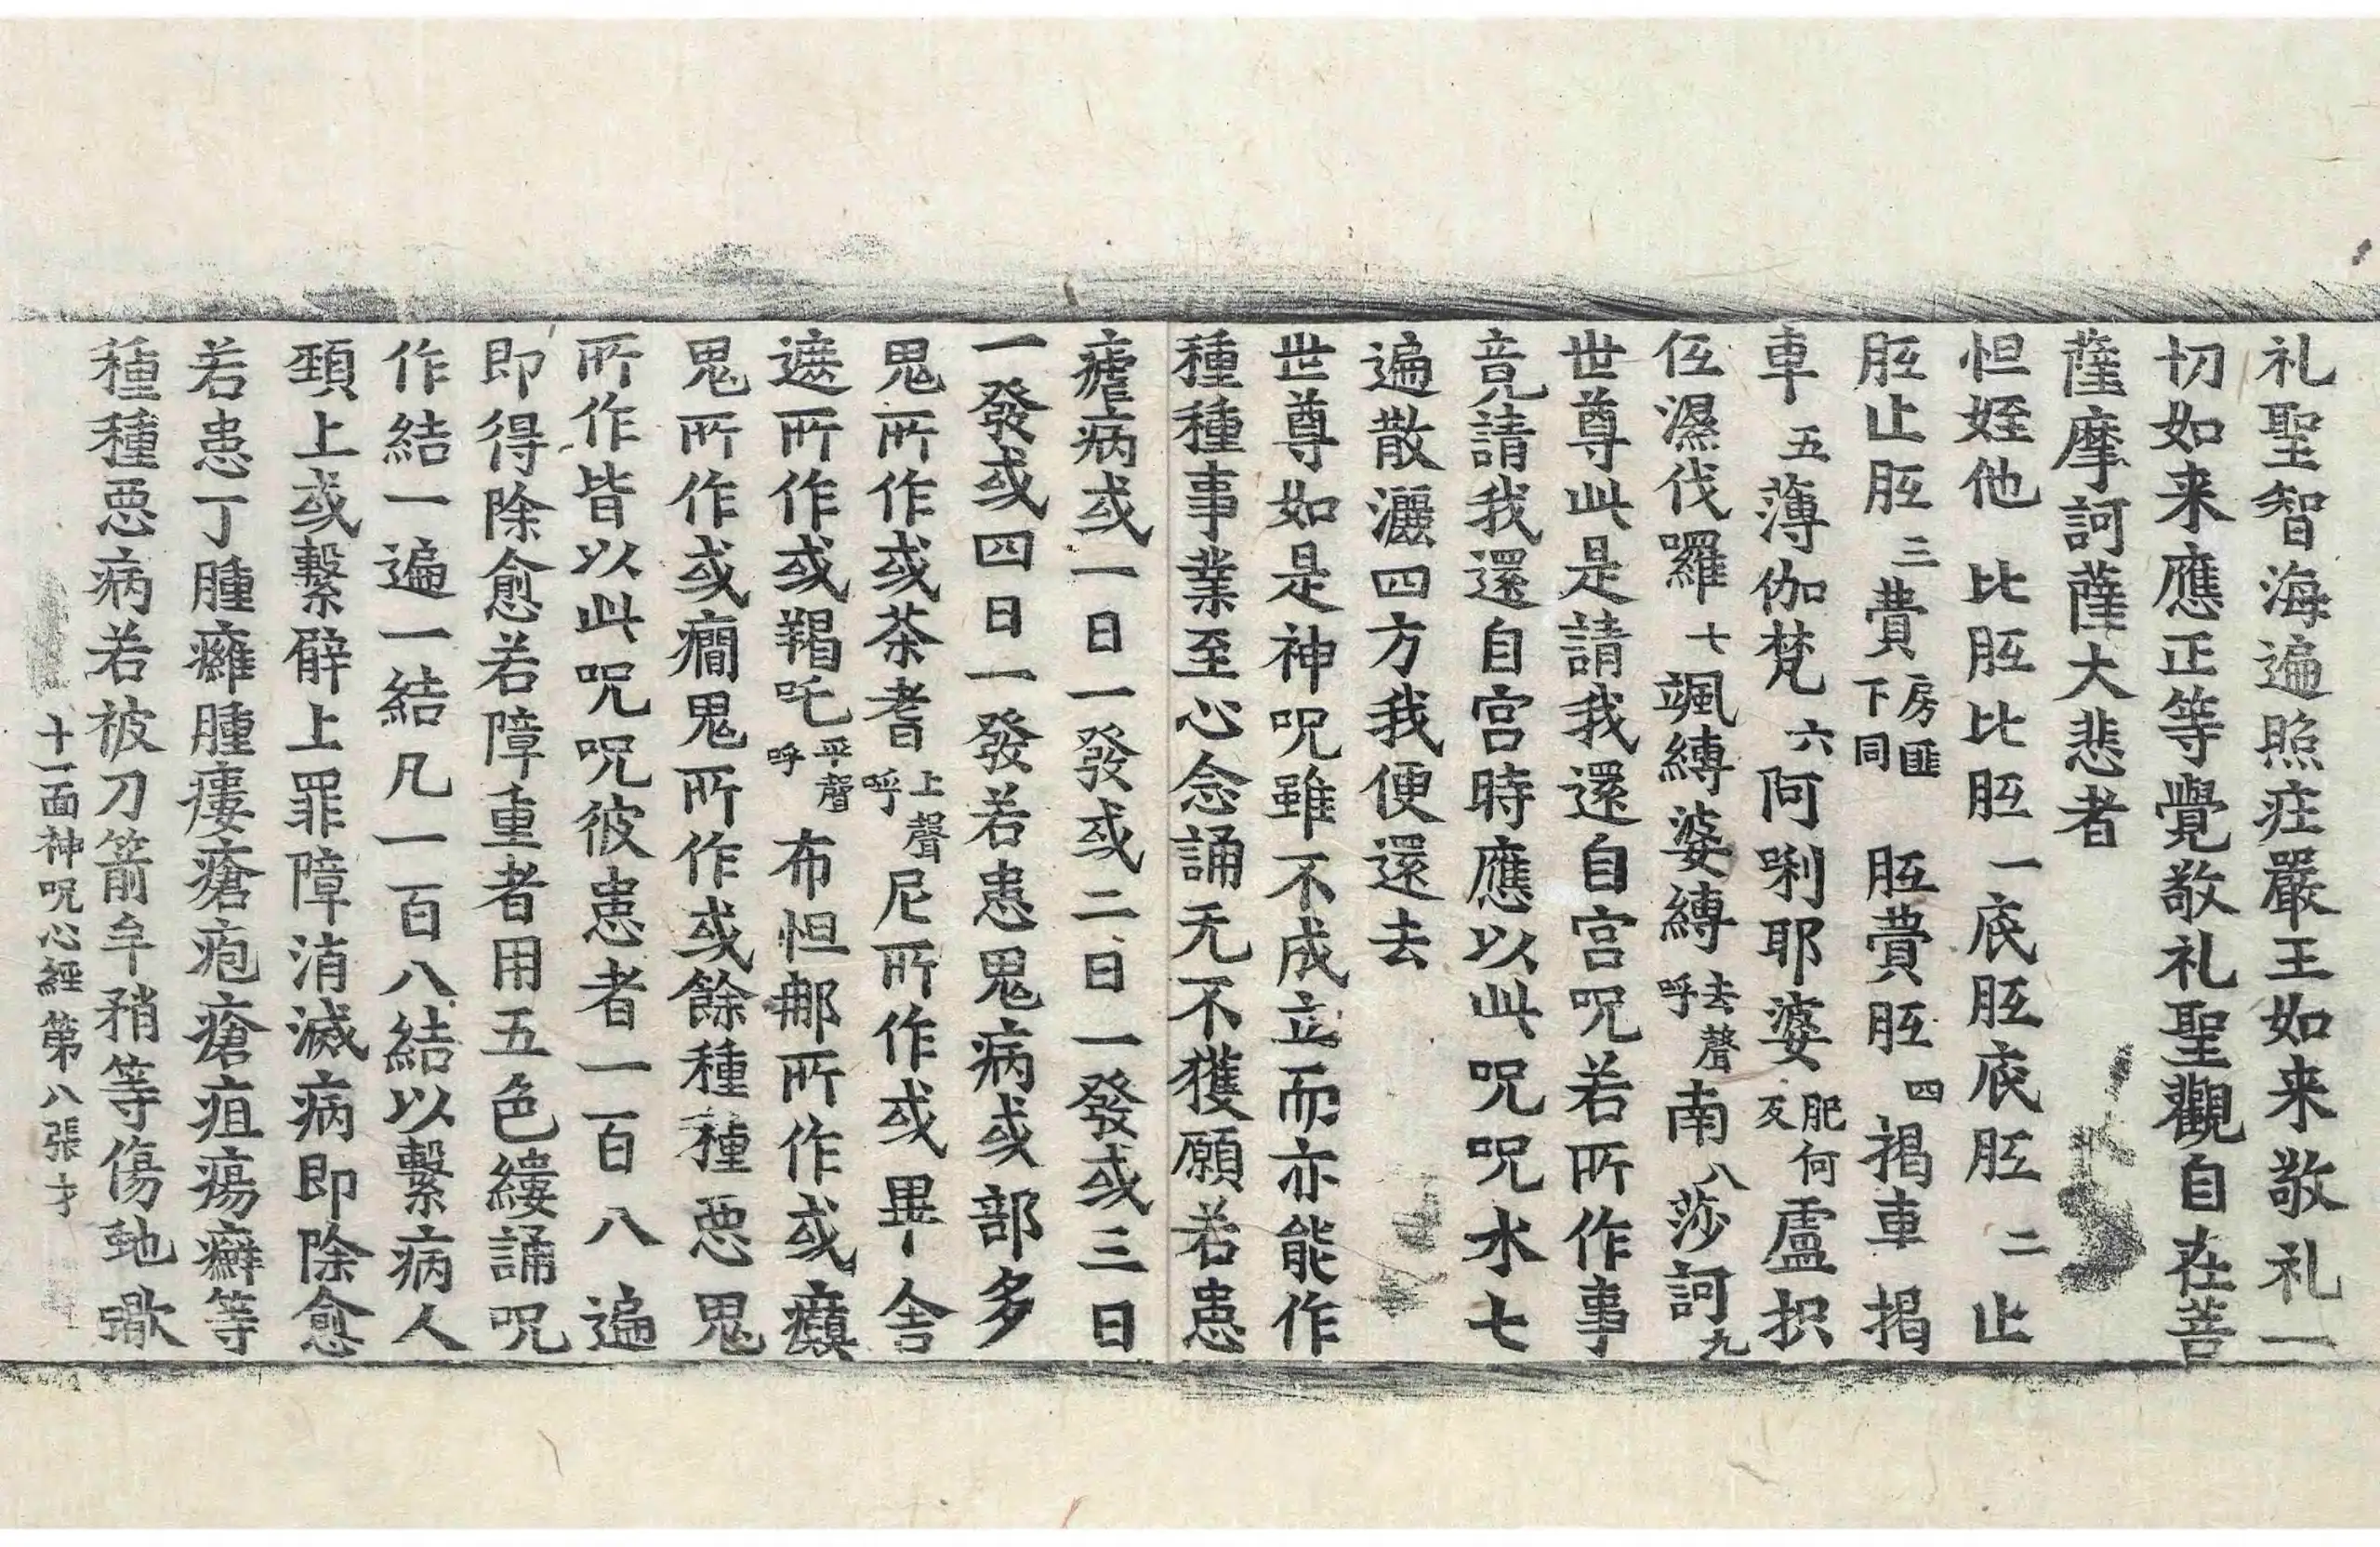 礼聖智海遍照莊嚴王如来敬礼一
切如来應正等覺敬礼聖觀自在菩
薩摩訶薩大悲者
怛姪他 比胝比胝一底胝底胝二止
胝止胝三費房匪下同胝費胝四揭車 揭
車五薄伽梵六阿唎耶婆肥何反盧枳
伍濕伐囉七颯縛婆縛去聲呼南八莎訶九
世尊此是請我還自宮呪若所作事
竟請我還自宮時應以此呪呪水七
遍散灑四方我便還去
世尊如是神呪雖不成立而亦能作
種種事業至心念誦无不獲願若患
瘧病或一日一發或二日一發或三日
一發或四日一發若患鬼病或部多
鬼所作或荼耆上聲呼尼所作或畢舍
遮所作或羯吒平聲呼布怛那所作或癲
鬼所作或癇鬼所作或餘種種惡鬼
所作皆以此呪呪彼患者一百八遍
即得除愈若障重者用五色縷誦呪
作結一遍一結凡一百八結以繫病人
頸上或繫臂上罪障消滅病即除愈
若患丁腫癰腫瘻瘡疱瘡疽瘍癬等
種種惡病若被刀箭牟矟等傷虵蠍
十一面神呪心經 第八張 才